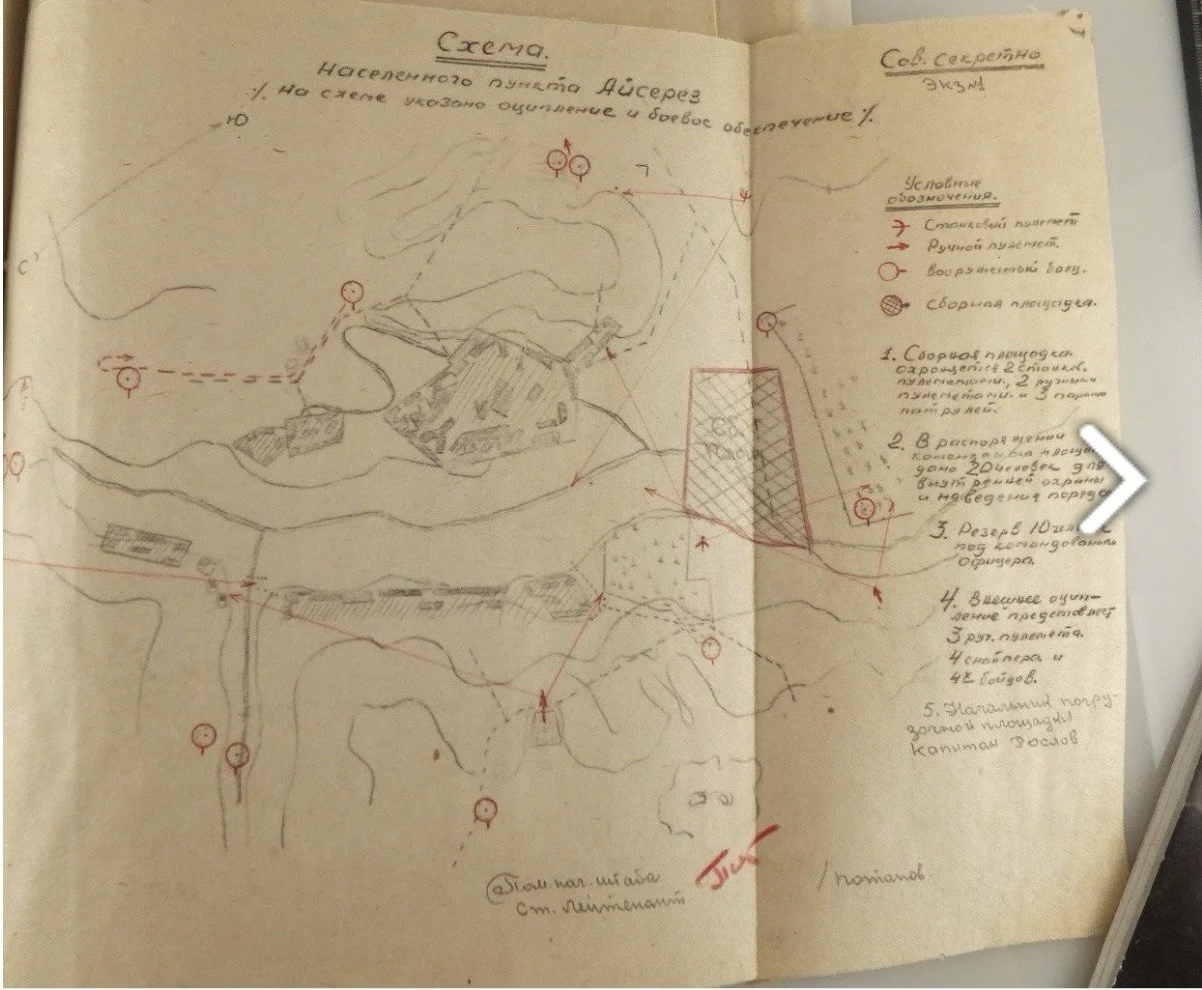 Схема.
Населенного пункта Айсерез
٪ На схеме указано оципление и боевое обеспечение ٪.
Сов. секретно
Экз№1
Ю
С
Условные
обозначения.
Станковый пулемет
Ручной пулемет.
вооруженный боец.
Сборная площадка.
1. Сборная площадка
охроняется 2 станков.
пулеметами, 2 ручными
пулеметами и 3 парами
патрулей.
2. В распоряжении
коменданта площад
дано 20 человек для
внутренней охраны
и наведения порядк
3. Резерв 10
под командованием
офицера.
4. Внешнее оцип-
ление представляет
3 руч. пулемета.
4 снайпера и
бойцов.
5. Начальник погру-
зочной площадки
Капитан Рослов
Пом. нач. штаба
Ст. Лейтенант
/Потапов